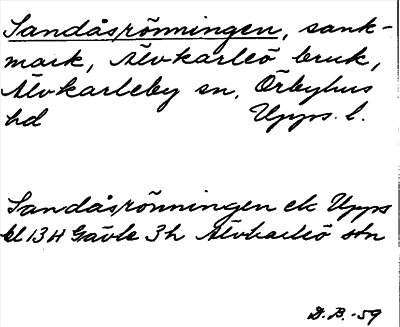 Sandåsrönningen, sank-
mark, Älvkarleö bruk,
Älvkarleby sn, Örbyhus
hd Upps. l.
Sandåsrönningen ek Upps
bl 13H Gävle 3h Älvkarleö stn
D.B.-59